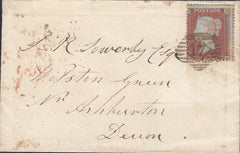 J. R. Sowerby Esq
Welston Green
Nr Ashburton
Devon